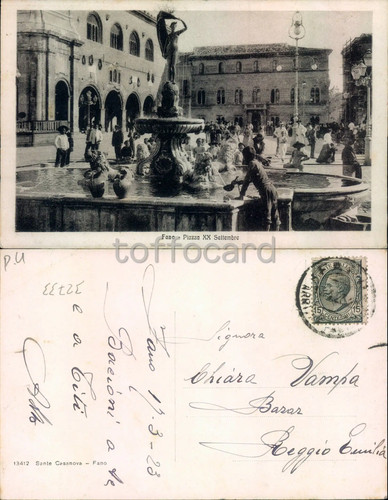 Fano - Piazza XX Settembre
toffocard
P.U
33733
Fano 17-3-23
Bacioni a te
e a Titi
Signora
Chiara Vampa
Bazar
Reggio Emilia
15
13612 Sante Casanova - Fano